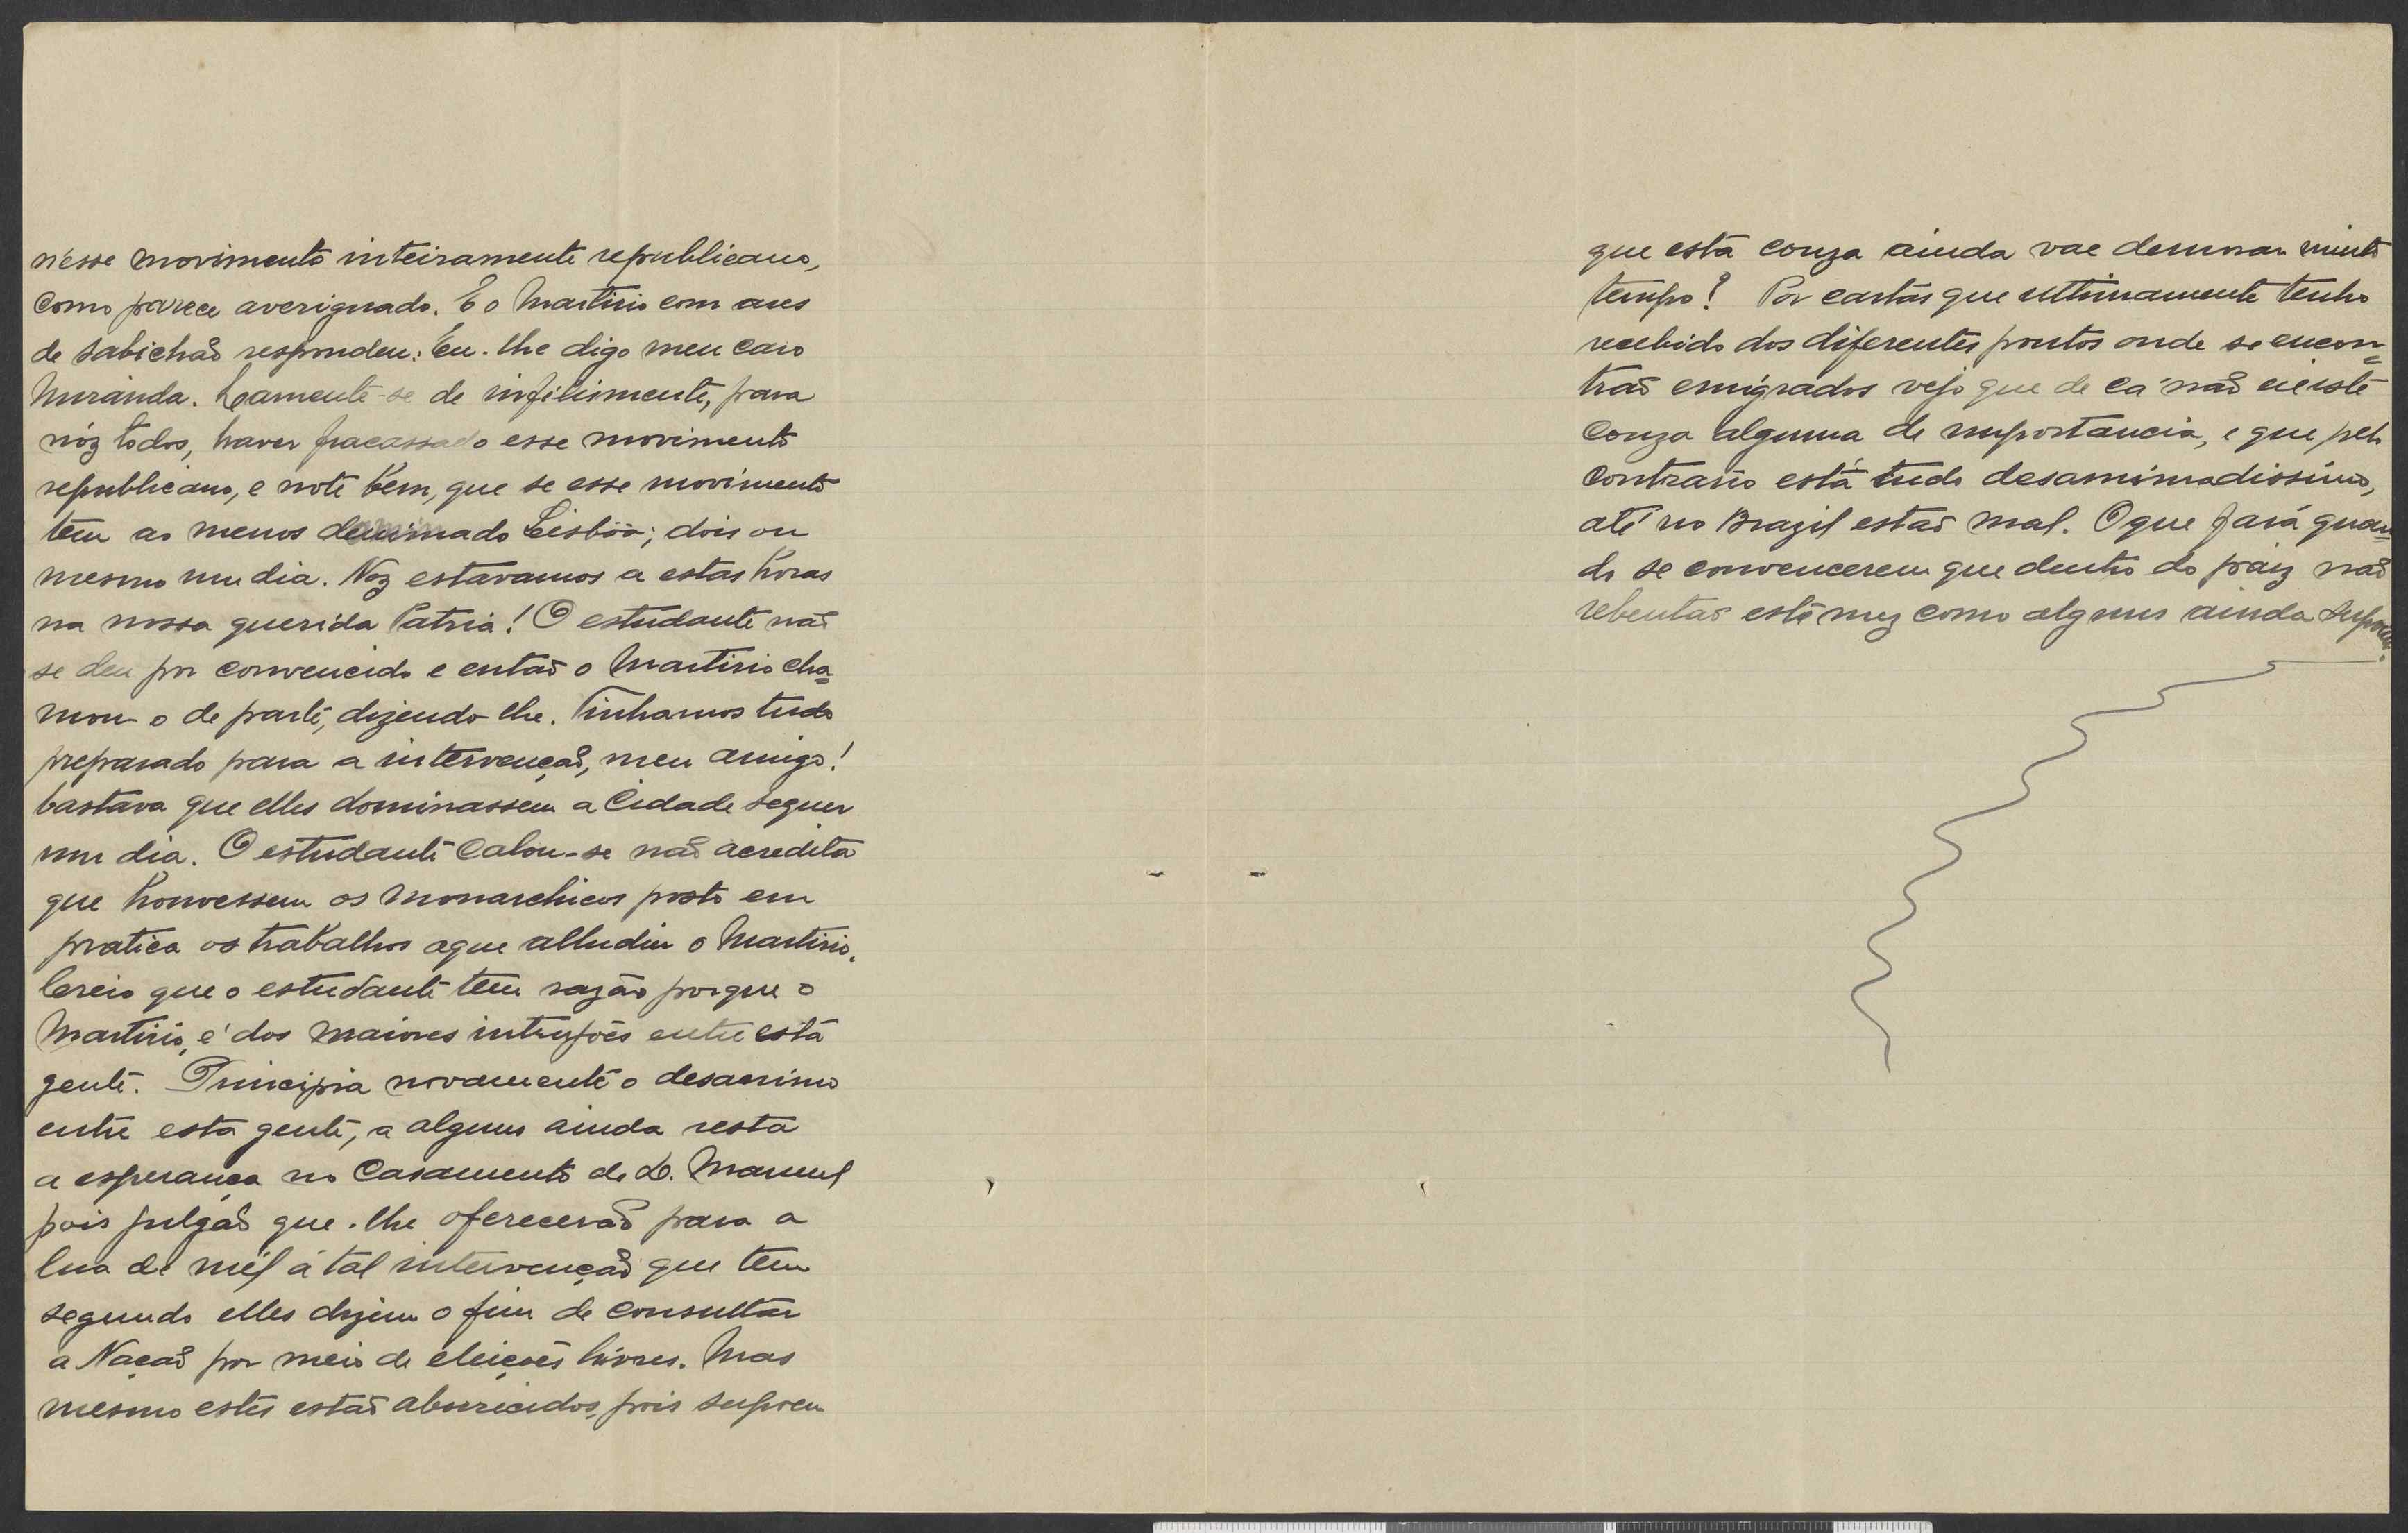 n'esse movimento inteiramente republicano,
como parece averiguado. E o Martirio com ares
de sabichaõ respondeu: Eu-lhe digo meu caro
Miranda. Lamente-se de infilismente, para
nóz todos, haver fracassado esse movimento
republicano, e note bem, que se esse movimento
tem ao menos dominado Lisbôa; dois ou
mesmo um dia. Noz estavamos a estas horas
na nossa querida Patria! O estudante naõ
se deu por convencido e entaõ o Martirio cha=
mou-o de parte, dizendo-lhe. Tinhamos tudo
preparado para a intervençaõ, meu amigo!
bastava que elles dominassem a Cidade sequer
um dia. O estudante Calou-se naõ acredita
que houvessem os monarchicos posto em
pratica os trabalhos aque alludiu o Martirio.
Creio que o estudante tem razão porque o
Martirio, é dos maiores intrujoẽs entre esta
gente. Principia novamente o desanimo
entre esta gente, a alguns ainda resta
a esperança no Casamento de D. Manuel
pois julgaõ que-lhe ofereceraõ para a
lua de mél a tal intervençaõ que tem
segundo elles dizem o fim de consultar
a Naçaõ por meio de eleiçoẽs livres. Mas
mesmo estes estaõ aborrecidos, pois supoem
que esta couza ainda vae demorar muito
tempo! Por cartas que ultimamente tenho
recebido dos diferentes pontos onde se encon=
traõ emigrados vejo que de cá naõ existe
couza alguma de importancia, e que pelo
contrario está tudo desanimadissimo,
até no Brazil estaõ mal. O que fará quan=
do se convencerem que dentro do paiz naõ
rebentaõ este mez como alguns ainda supoem.